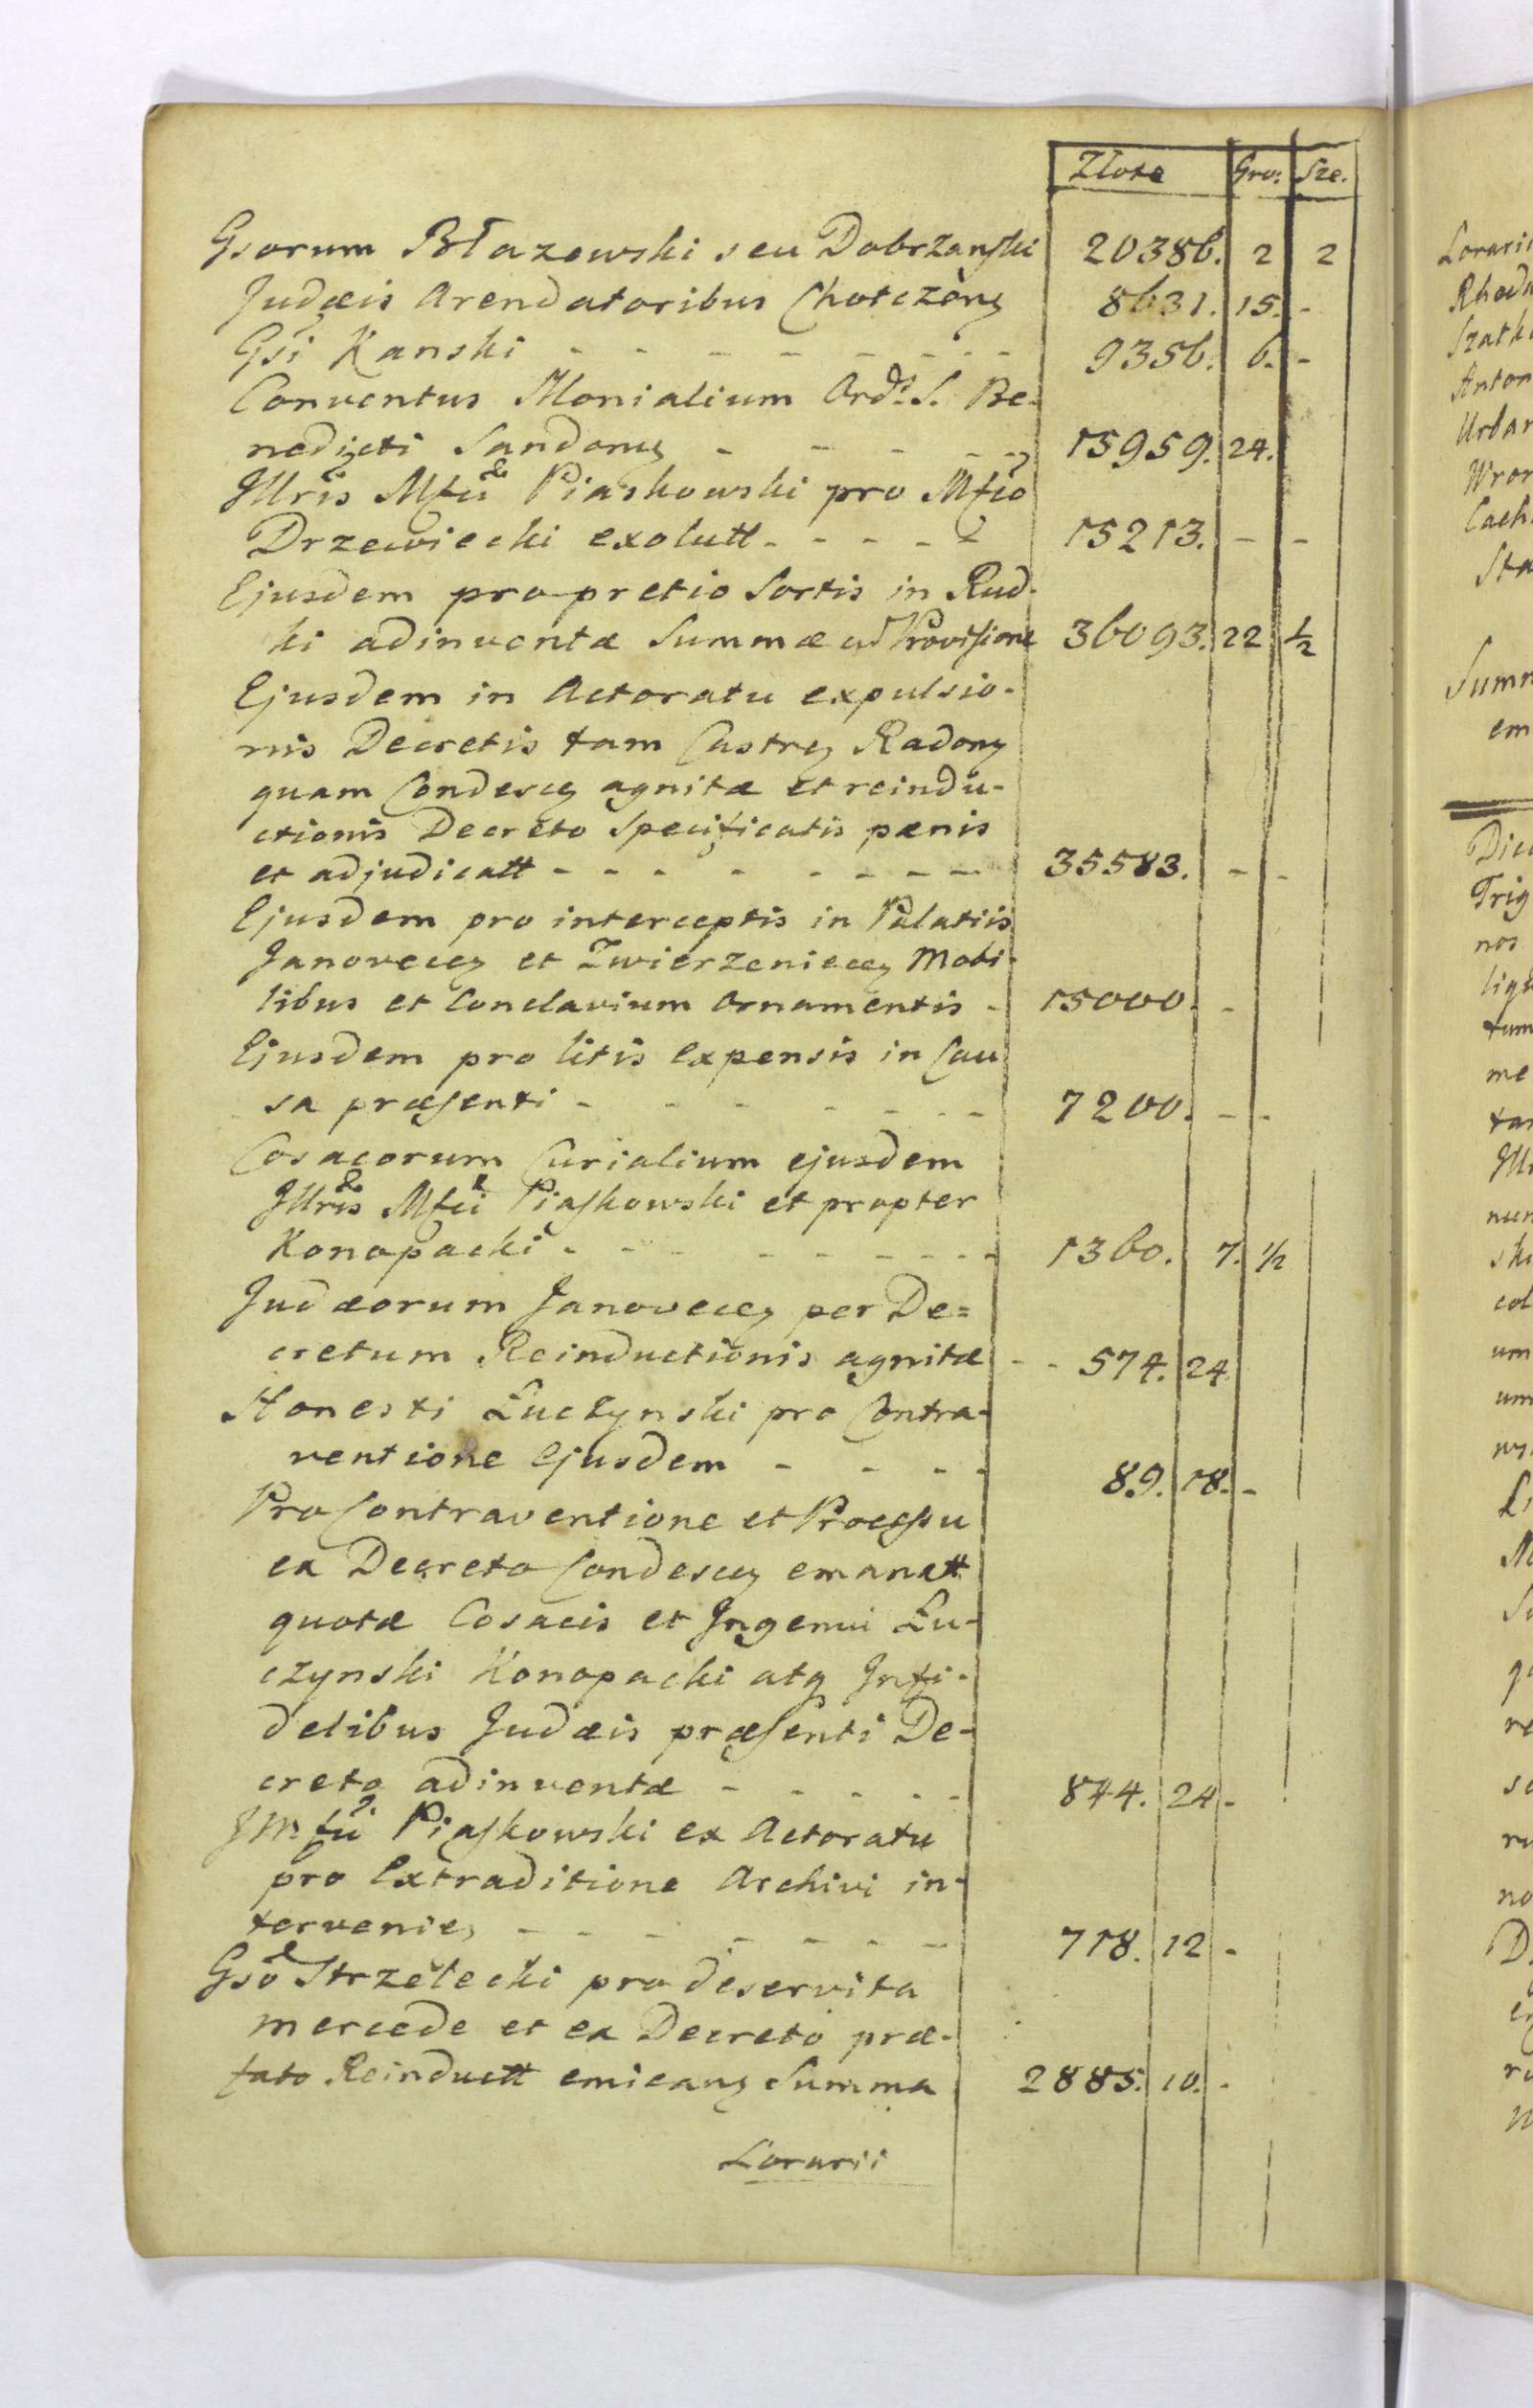 Złote Gro: Sze.
Gsorum Błazewski seu Dobrzanski 20386. 2 2
Judæis Arendatoribus Chotczen 8631. 15. -
Gsi Kanski - - - - - - - - 9356. 6. -
Conventus Monialium Ord: S. Be-
nedicti Sandom - - - - - 15959. 24.
Illris Mfci Piaskowski pro Mfco
Drzewiecki exolutt - - - - - 15213. - -
Ejusdem pro pretio Sortis in Rud-
ki adinventæ Summæ ad Provisione 36093. 22 1/2
Ejusdem in Actoratu expulsio-
nis Decretis tam Castren Radom
quam Condescen agnitæ et reindu-
ctionis Decreto Specificatis pænis
et adjudicatt - - - - - - - - 35583. - -
Ejusdem pro interceptis in Palatiis
Janovecen et Zwierzeniecen Mobi-
libus et Conclavium Ornamentis - 15000. -
Ejusdem pro litis Expensis in Cau
sa præsenti - - - - - - - 7200. - -
Cosacorum Curialium ejusdem
Illris Mfci Piaskowski et propter
Konopacki - - - - - - - - 1360. 7. 1/2
Judæorum Janovecen per De=
cretum Reinductionis agnitæ - - 574. 24
Honesti Łuczynski pro Contra-
ventione Ejusdem - - - - 89. 18. -
Pro Contraventione et Processu
ex Decreto Condescen emanatt
quotæ Cosacis et Ingenui Łu-
czynski Konopacki atq Infi-
delibus Judæis præsenti De-
creto adinventæ - - - - - 844. 24 -
Mfci Piaskowski ex Actoratu
pro Extraditione Archivi in-
tervenien - - - - - - - 718. 12 -
Gso Strzelecki pro deservita
mercede et ex Decreto præ-
fato Reinductt emican Summa 2885. 10. -
Lorarii